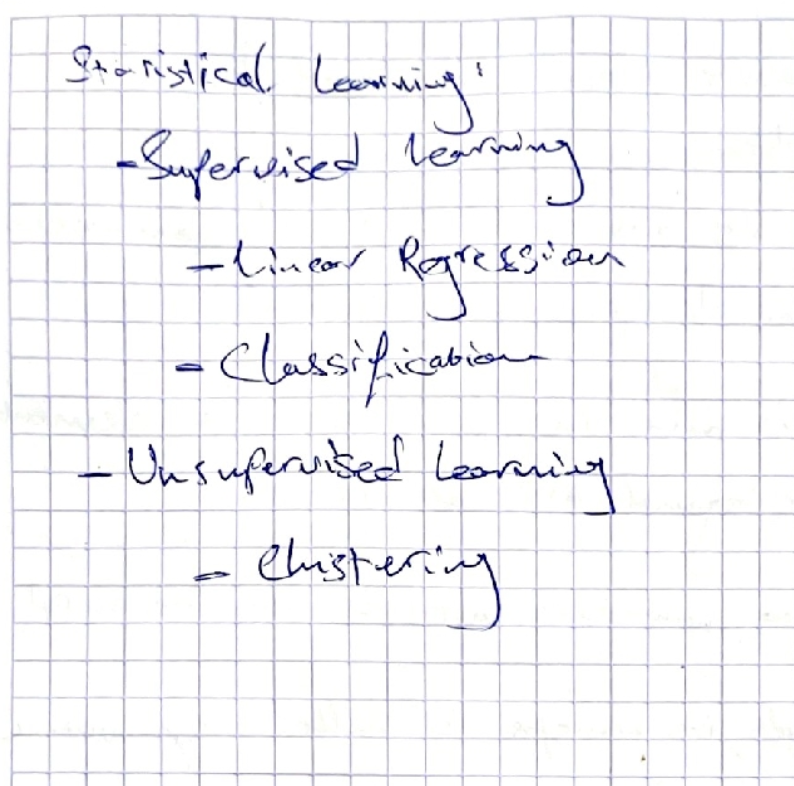 Statistical Learning:
- Supervised Learning
- Linear Regression
- Classification
- Unsupervised Learning
- Clustering